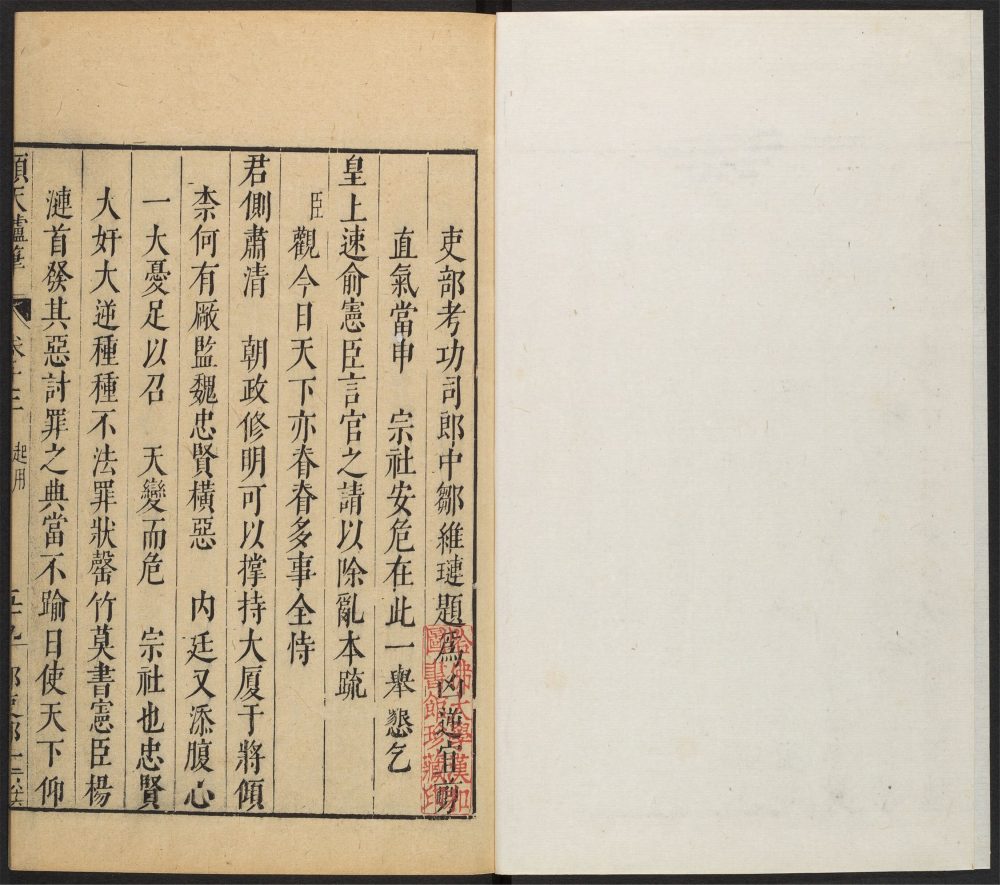 吏部考功司郎中鄒維璉題爲凶逆宜剪
直氣當申　宗社安危在此一舉懇乞
皇上速俞憲臣言官之請以除亂本疏
臣觀今日天下亦眷眷多事全恃
君側肅清　朝政修明可以撑持大厦于將傾
柰何有厰監魏忠賢橫惡　內廷又添腹心
一大憂足以召　天變而危　宗社也忠賢
大奸大逆種種不法罪狀罄竹莫書憲臣楊
漣首發其惡討罪之典當不踰日使天下仰
頌天臚筆　卷十三　起用
哈佛大學漢和
圖書館珍藏印